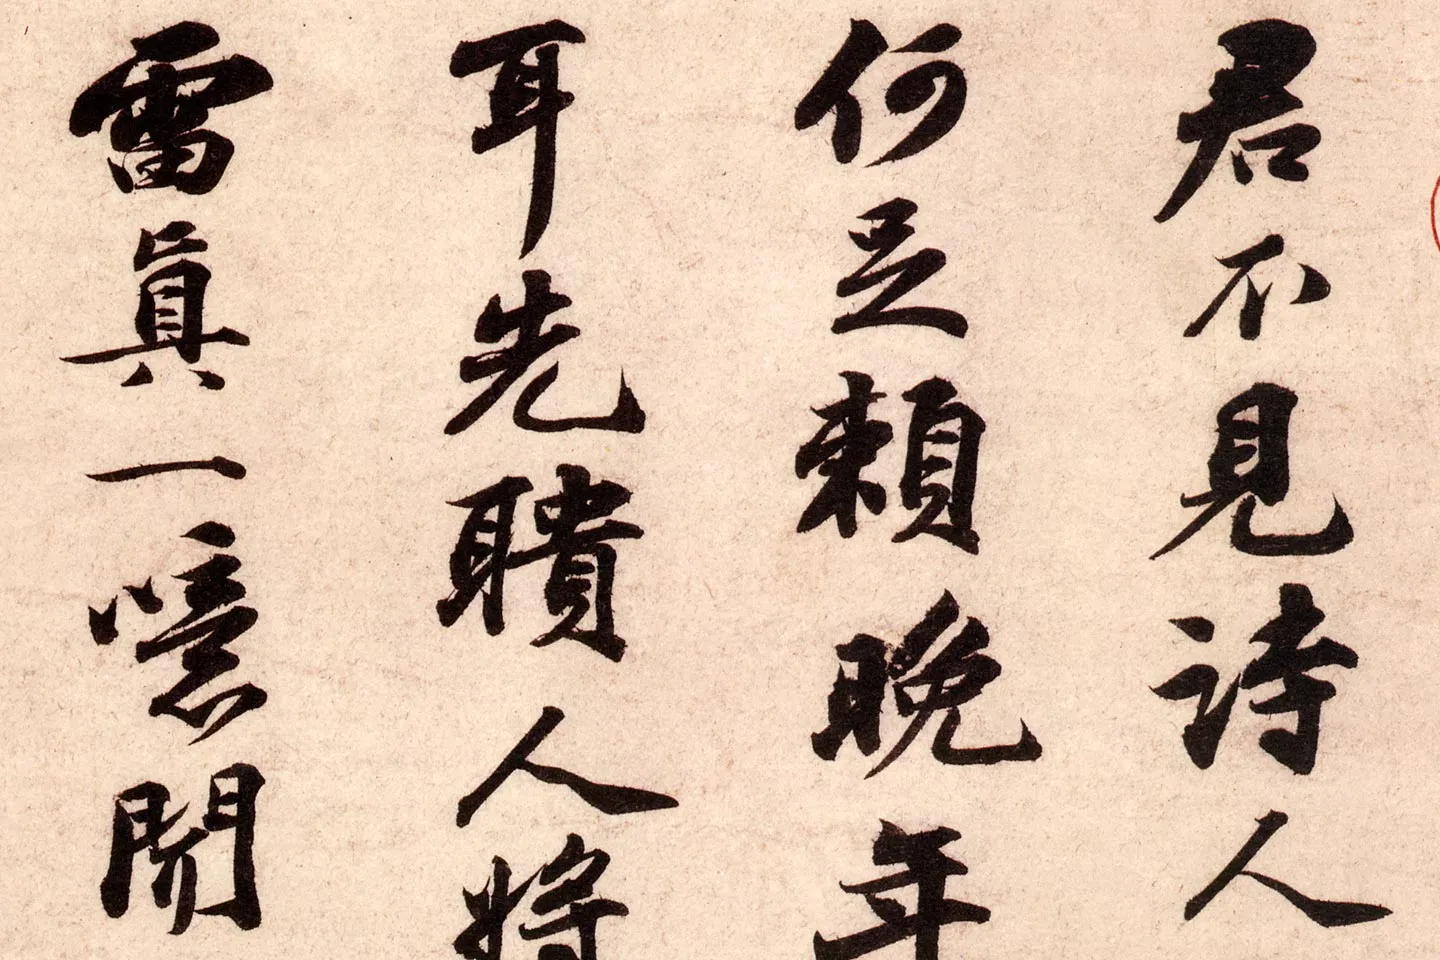 君不見詩人
何足賴晚年
耳先聵人將
雷眞一噫